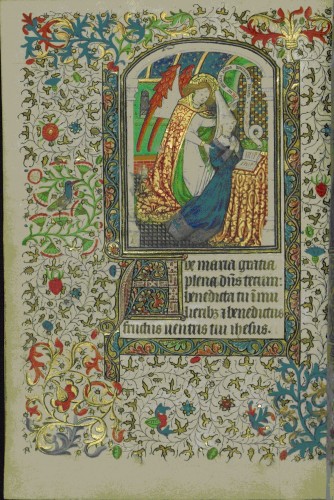 Ave maria gratia
plena dn̄s tecum:
benedicta tu ī mu
lierib⁊ ⁊ benedictus
fructus uentris tui ihesus.